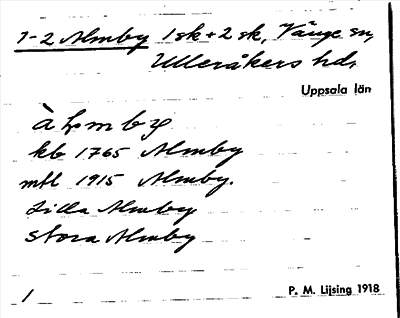 1-2 Almby 1 sk + 2 sk, Vänge sn,
Ulleråkers hd,
Uppsala län
kb 1765 Almby
mtl 1915 Almby.
Lilla Almby
Stora Almby
1
P. M. Lijsing 1918